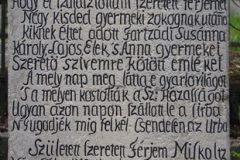 Hogy el taláztatom izeretett férjemet
Négy kisded gyermeki zokognak utána
Kiknek éltet adott Gartzádi Susánna
Károly, Lajos, Elek, s Anna gyermekei
Szerető szívemre kötöm emlékei
A mely nap meg látta e gyarló világot
S a melyen kostolták a Sz: Házasságot
Ugyan azon napon szállott le a sirba
Nyugadjék mig felkel Csendesen az Urba
Született Szeretett Férjem Miskoltz